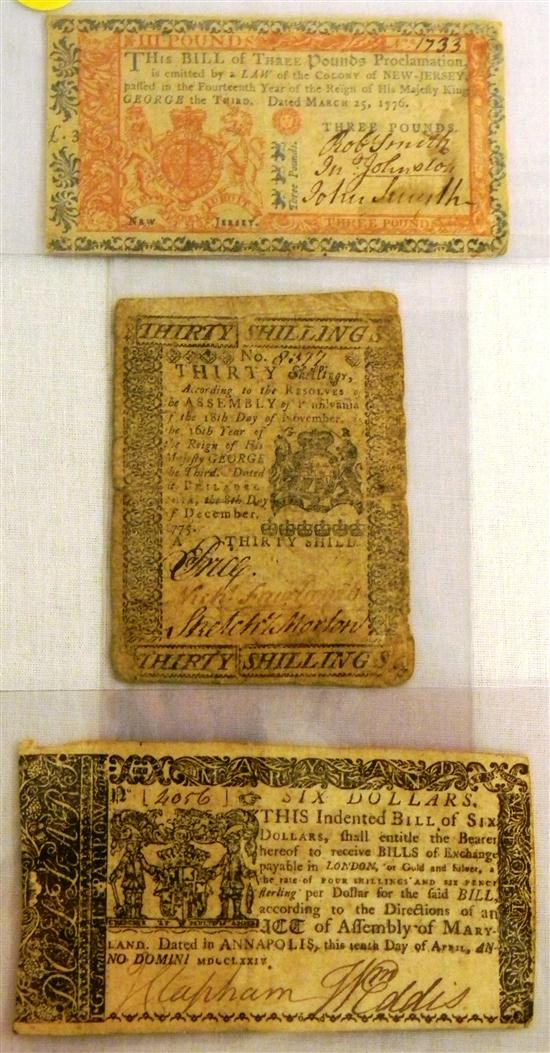 III POUNDS 1733
THIS BILL of THREE Pounds Proclamation,
is emitted by a LAW of the COLONY of NEW-JERSEY,
passed in the Fourteenth Year of the Reign of His Majesty King
GEORGE the THIRD. Dated MARCH 25, 1776.
£.3
THREE POUNDS.
Rob Smith
Jn Johnston
John Smyth
Three Pounds.
NEW JERSEY.
THREE POUND
THIRTY SHILLINGS
No. 8577
THIRTY Shillings,
According to the RESOLVES o
he ASSEMBLY of Pennsylvania
f the 18th Day of November,
he 16th Year of
the Reign of His
Majesty GEORGE
he Third. Dated
t PHILADEL
the 8th Day
f December,
775.
G R
A THIRTY SHILL
Sketchy Morton
THIRTY SHILLINGS
MARYLAND
No [4056] SIX DOLLARS.
THIS Indented BILL of SIX
DOLLARS, shall entitle the Bearer
hereof to receive BILLS of Exchange
payable in LONDON, or Gold and Silver, a
the rate of FOUR SHILLINGS AND SIX PENCE
sterling per Dollar for the said BILL,
according to the Directions of an
ACT of Assembly of MARY-
LAND. Dated in ANNAPOLIS, this tenth Day of APRIL, AN-
NO DOMINI MDCCLXXIV.
J Clapham Wm Eddis